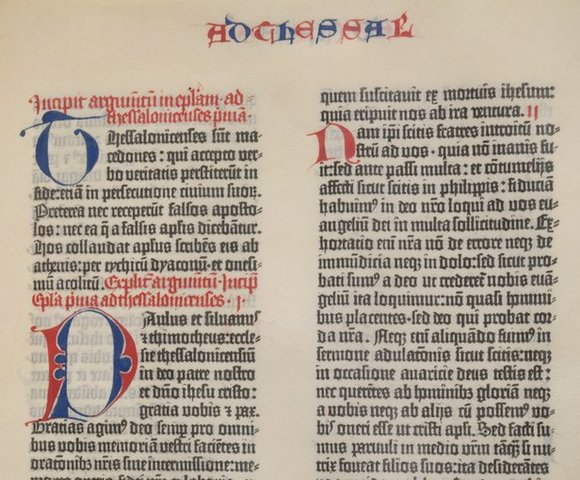 AD THESSAL
Incipit argumētū in eplam ad
thessalonicenses prima·
Thessalonicenses sūt ma-
cedones: qui accepto ver-
bo veritatis perstiterūt in
fide: etiā in persecutione civium suoꝝ.
Preterea nec receperūt falsos aposto-
los: nec ea q̄ a falsis aplīs dicebātur.
Hos collaudat aplus scribēs eis ab
athenis: per tychicū dyaconū· et onesi-
mū acolitū. Explicit argumētū· Incipit
Epla prima ad thessalonicenses · I ·
Paulus et silvanus
⁊ thimotheus: eccle-
sie thessalonicensiū
in deo patre nostro
et dn̄o ihesu cristo:
gratia vobis ⁊ pax.
Gratias agimꝰ deo semp pro omni-
bus vobis memoriā vestri faciētes in
orationibꝫ nr̄is sine intermissione: me-
quem suscitavit ex mortuis ihesum:
quia eripuit nos ab ira ventura. II
Nam ip̄i scitis fratres introitū no-
strū ad vos · quia nō inanis fu-
it: sed ante passi multa: et cōtumelijs
affecti sicut scitis in philippis: fiduciā
habuimꝰ in deo nr̄o loqui ad vos eu-
angeliū dei in multa sollicitudine. Ex-
hortatio eni nr̄a nō de errore neqꝫ de
immūdicia neqꝫ in dolo: sed sicut pro-
bati sumꝰ a deo ut crederet nobis euā-
geliū ita loquimur: nō quasi homini-
bus placentes· sed deo qui probat cor-
da nr̄a. Neqꝫ eni aliquādo fuimꝰ in
sermone adulationis sicut scitis: neqꝫ
in occasione avaricie deus testis est:
nec querētes ab hominibꝫ gloriā neqꝫ
a vobis neqꝫ ab alijs cū possemꝰ vo-
bis oneri esse ut cristi apli. Sed facti su-
mus parvuli in medio vr̄m tāqꝫ si nu-
trix foveat filios suos: ita desiderātes